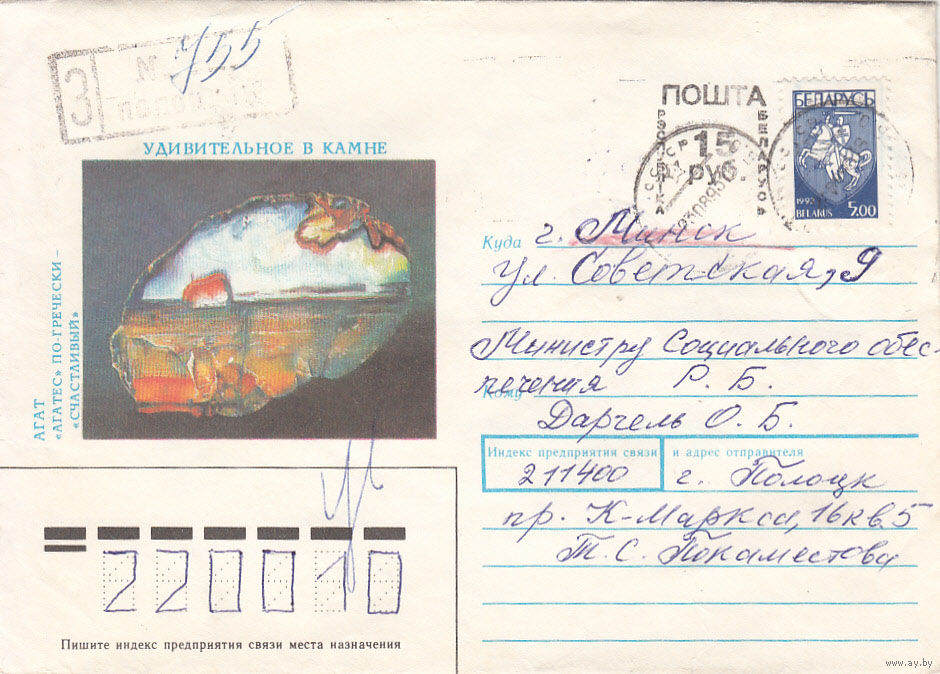 З
N 755
УДИВИТЕЛЬНОЕ В КАМНЕ
АГАТ
«АГАТЕС» ПО-ГРЕЧЕСКИ –
«СЧАСТЛИВЫЙ»
ПОШТА
15
руб
БЕЛАРУСЬ
1992
BELARUS 5.00
Куда г. Минск
ул. Советская, 9
Министру Социального обес-
печения Р. Б.
Кому
Даргель О. Б.
Индекс предприятия связи и адрес отправителя
211400 г. Полоцк
пр. К-Маркса, 16 кв. 5
Т. С. Покаместова
220010
Пишите индекс предприятия связи места назначения
www.ay.by